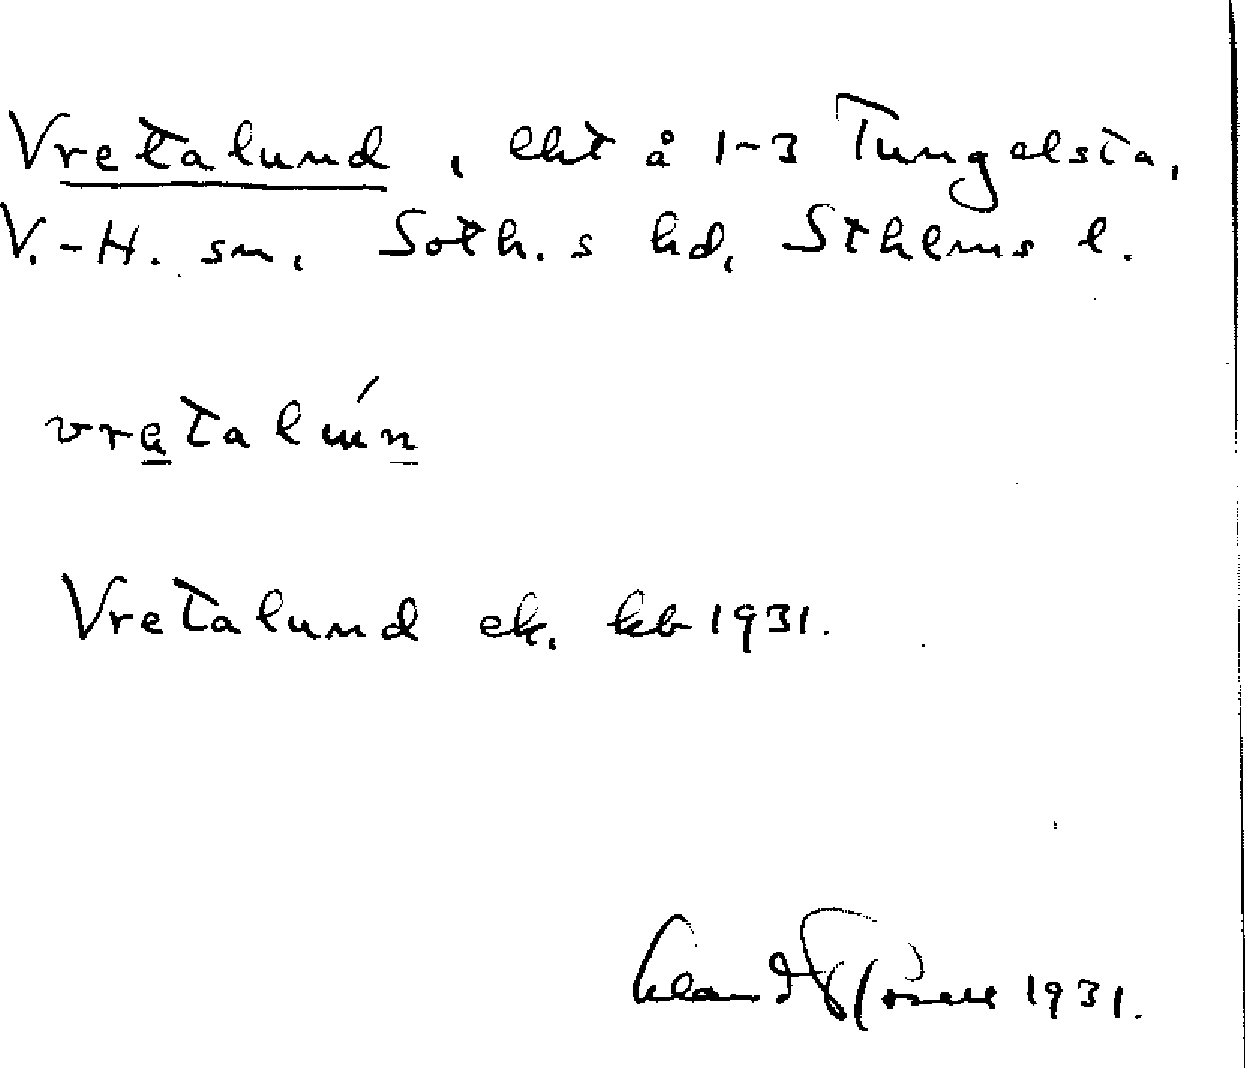 Vretalund, lht å 1-3 Tungelsta,
V.-H. sn, Soth. s hd, Sthlms l.
vretalún
Vretalund ek. kb 1931.
1931.